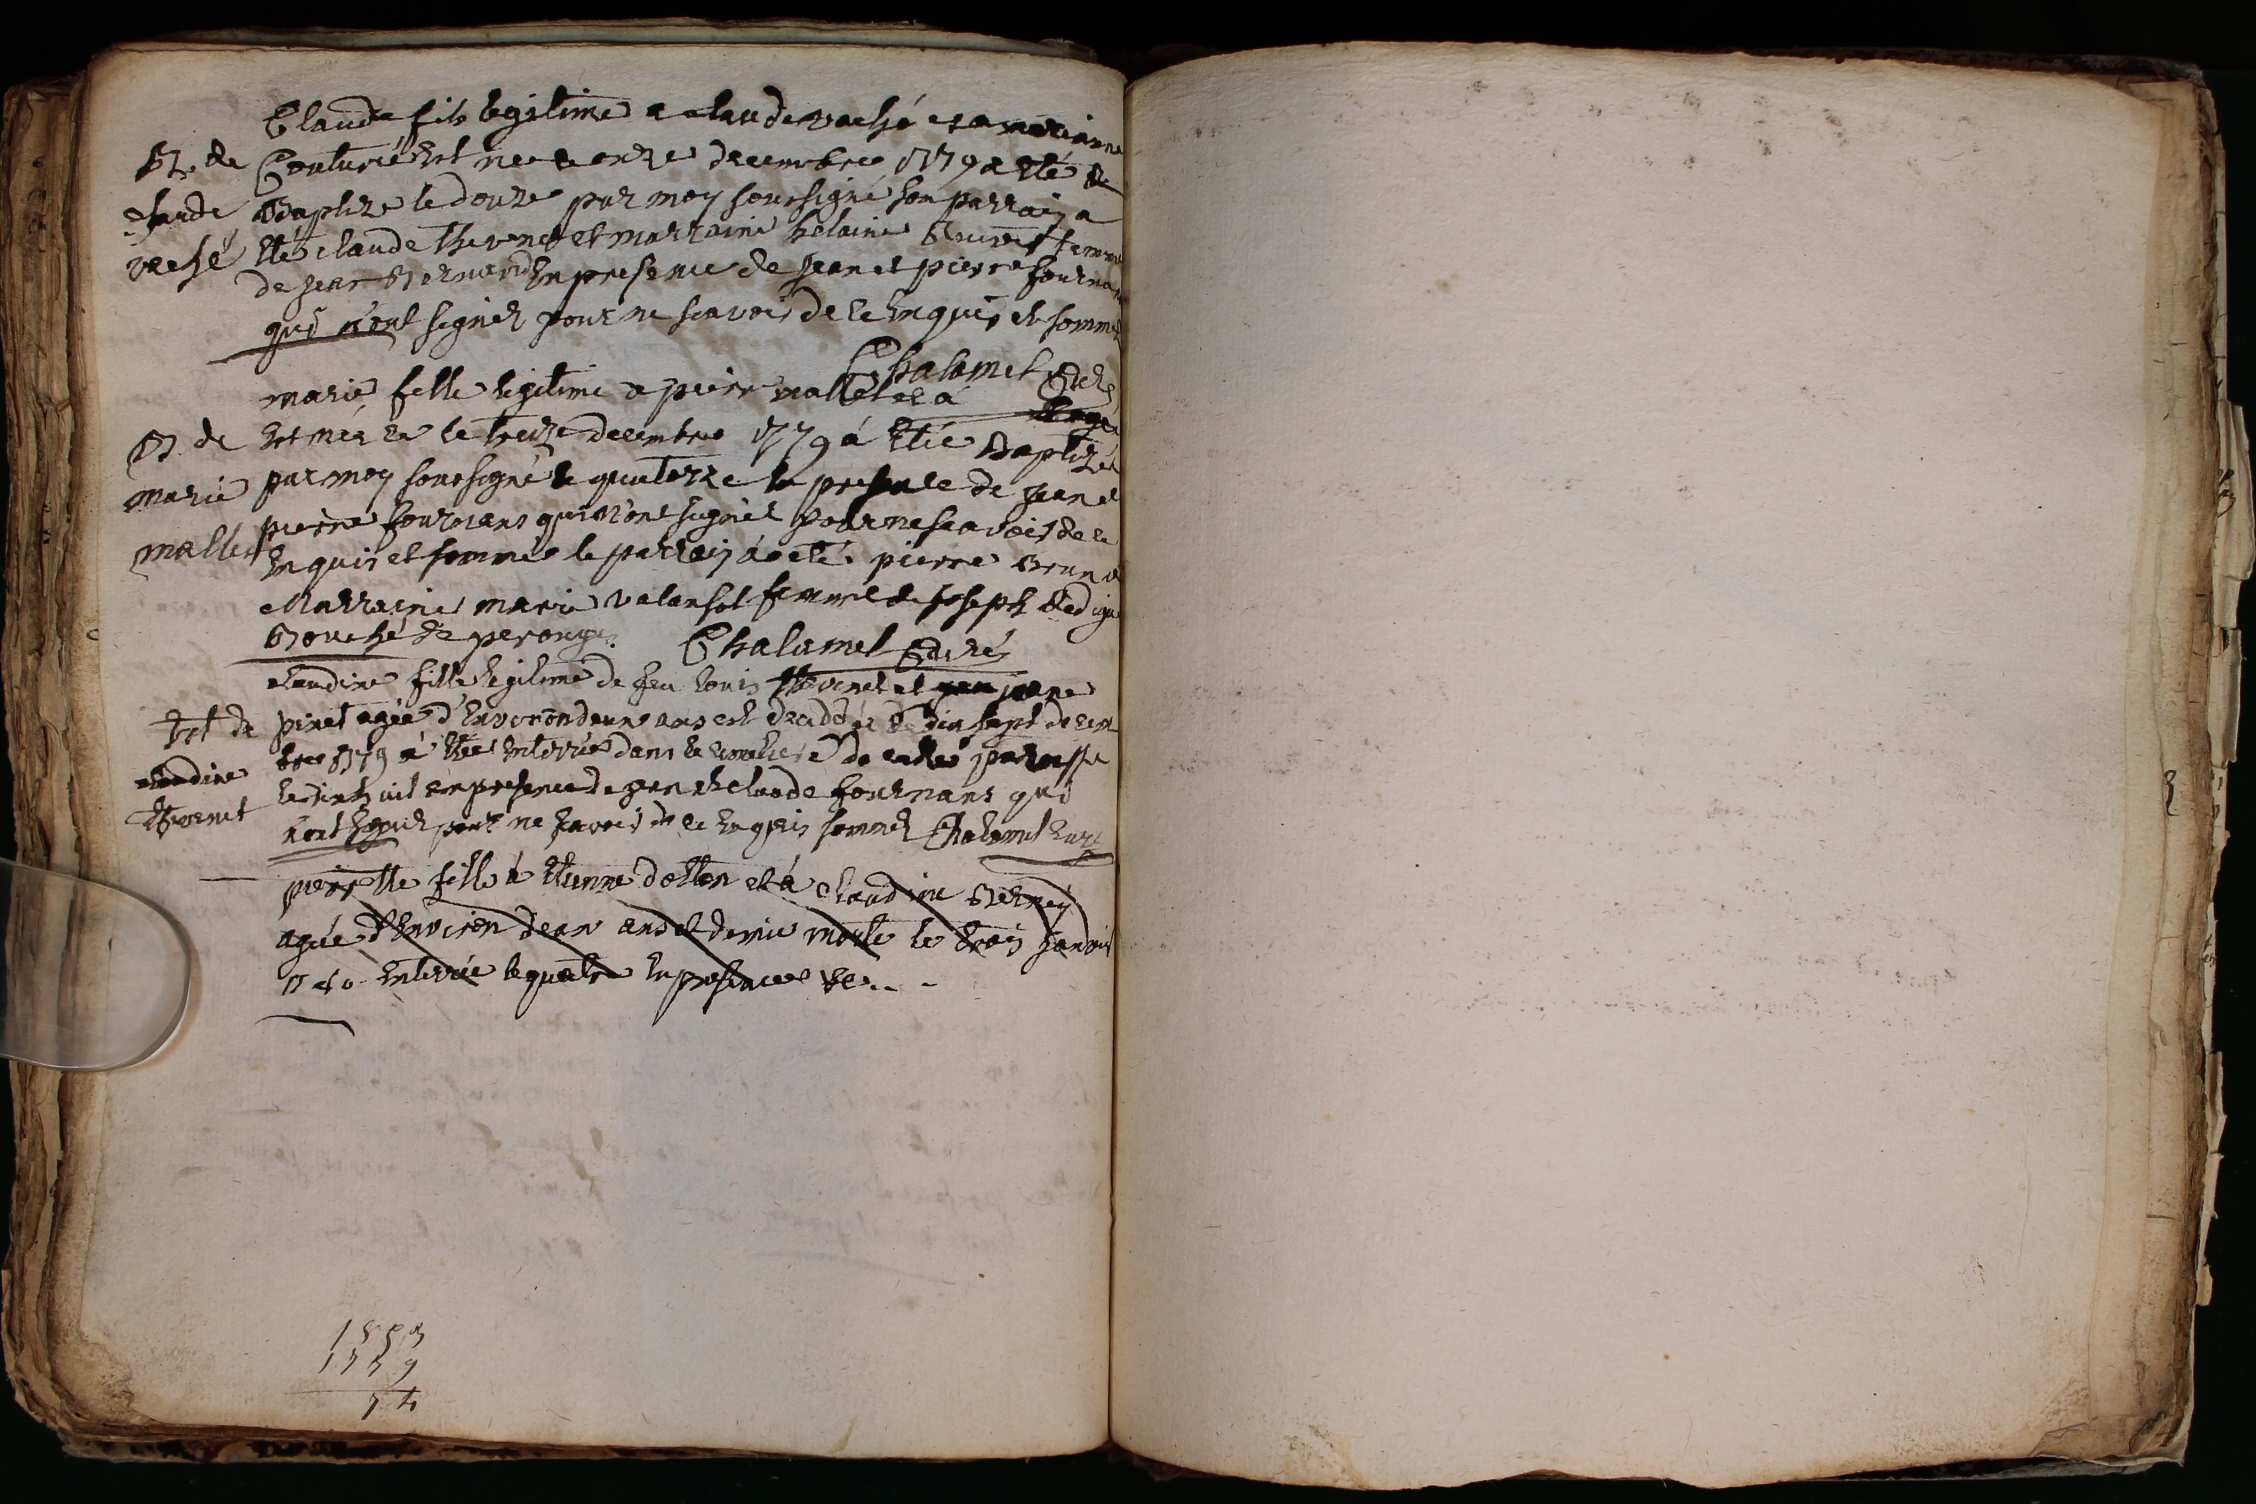 Claude fils legitime a claude vaché et a marianne
B. de Couturié Est ne le onze decembre 1779 a eté
claude Baptize le douze par moy soussigné son parrain a
vaché Eté claude thevenet et marraine helaine femme
de jean Bernard En presence de jean et pierre fournans
qui n'ont signer pour ne scavoir de ce Enquis et sommer
Chalamel Curé
marie fille legitime a pierre mallet et a
B. de Est née le treize decembre 1779 á Etée Baptizée
marie par moy soussigné le quatorze En presence de jean et
mallet pierre fournans qui n'ont signer pour ne scavoir de ce
Enquis et sommer le parrain á eté pierre Brun
Marraine marie valansot femme de joseph
Bouché de perouge Chalamel Curé
claudine fille legitime de feu louis thevenet et jeane
Ent de pinet agée d'Environ deux ans est decedée le dix sept decem
claudine bre 1779 á Etée Enterrée dans le cimetiere de cette paroisse
thevenet le dix huit en presence de jean et claude fournans qui
n'ont signer pour ne scavoir de ce Enquis sommer Chalamel Curé
pierrette fille á Etienne et á claudine Berney
agée d'Environ deux ans et demie morte le trois janvier
1780 Enterrée le quatre En presence de...
1853
1779
74